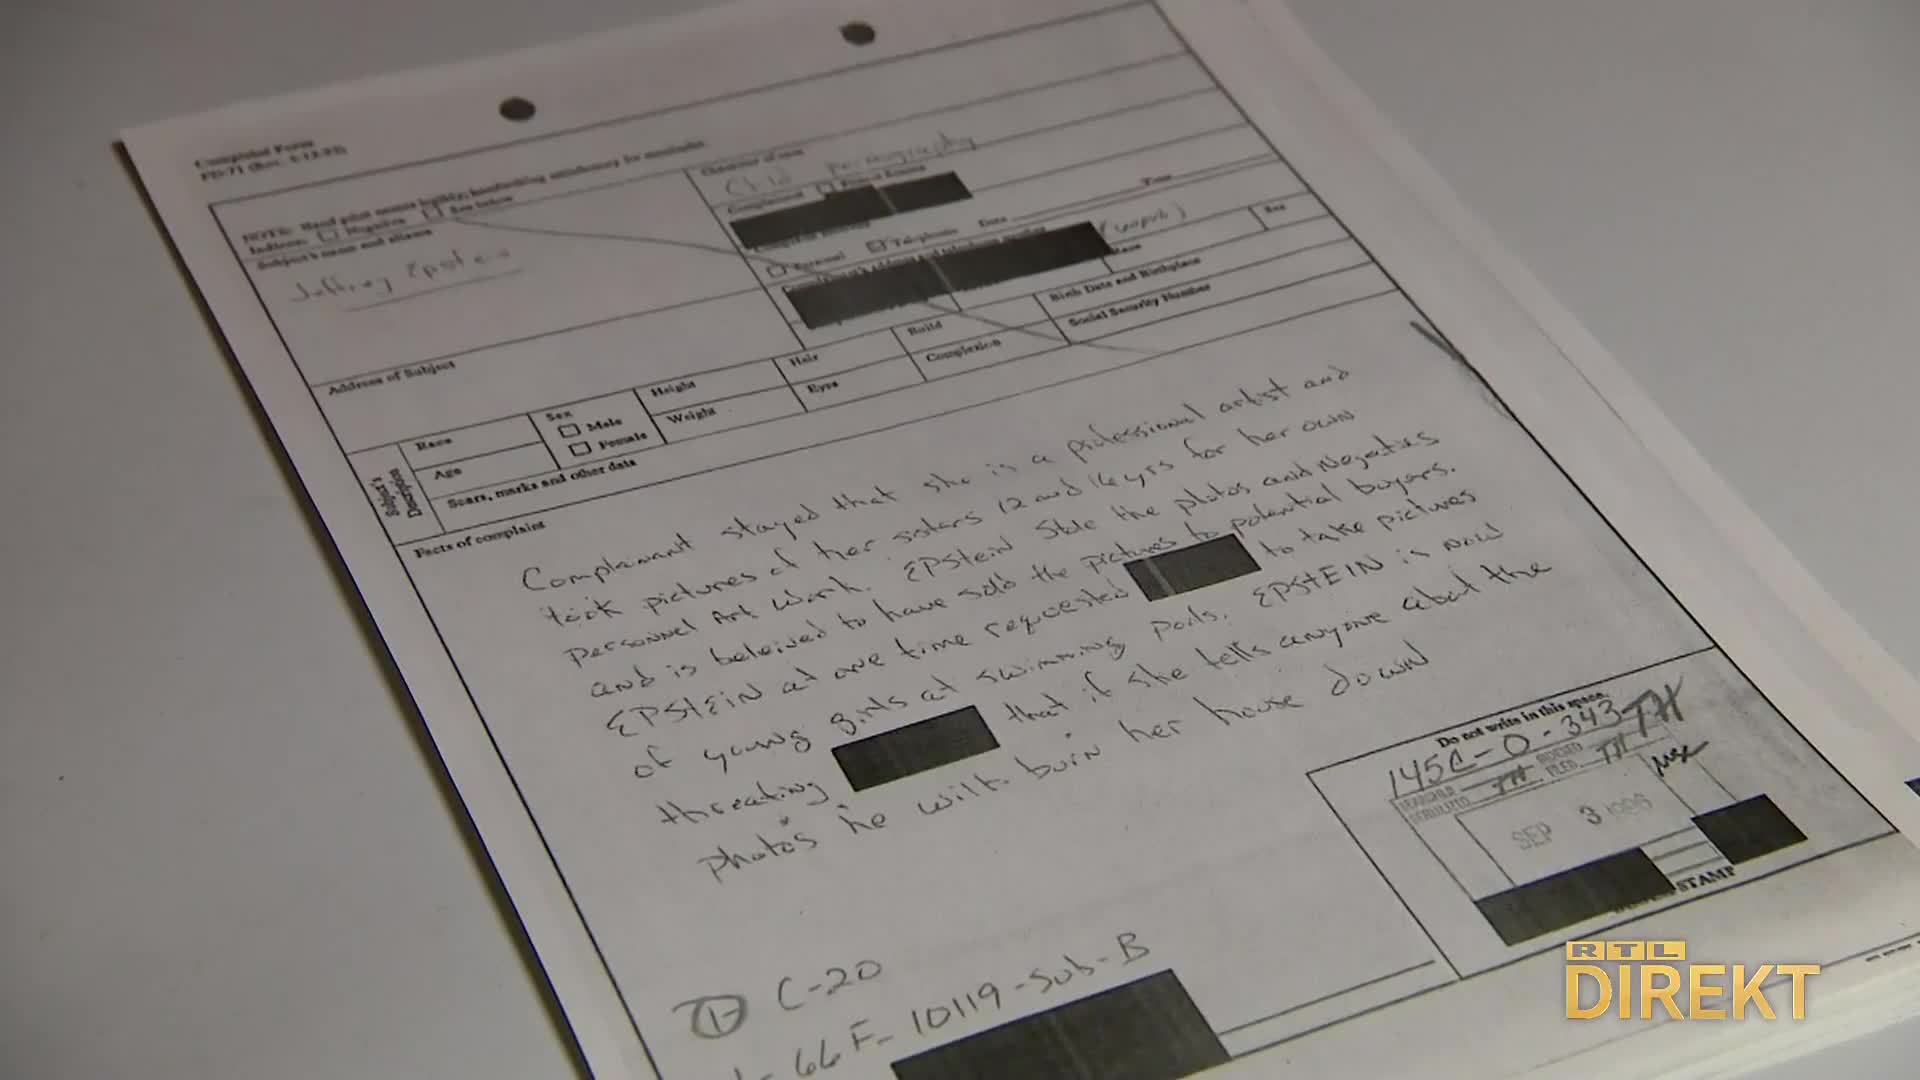 Complaint Form
FD-71
NOTE: Hand print names legibly; handwriting satisfactory for remainder.
Indices: Negative See below
Subject's name and aliases
Jeffrey Epstein
Character of case
Child Pornography
Complainant Protect Source
Personal Telephonic Date Time
Address of Subject
Race Sex
Birth Date and Birthplace
Social Security Number
Subject's Description
Race
Sex
Male
Female
Height
Hair
Build
Age
Weight
Eyes
Complexion
Scars, marks and other data
Facts of complaint
Complainant stayed that she is a professional artist and
took pictures of her sisters 12 and 16 yrs for her own
personnel Art work. EPStein Stole the photos and Negatives
and is beleived to have sold the pictures to potential buyers.
EPStEIN at one time requested to take pictures
of young girls at swimming pools. EPStEIN is now
threating that if she tells anyone about the
photos he will burn her house down
Do not write in this space.
145C-0-343
SEP 3 1996
STAMP
C-20
66F-10119-Sub-B
RTL
DIREKT